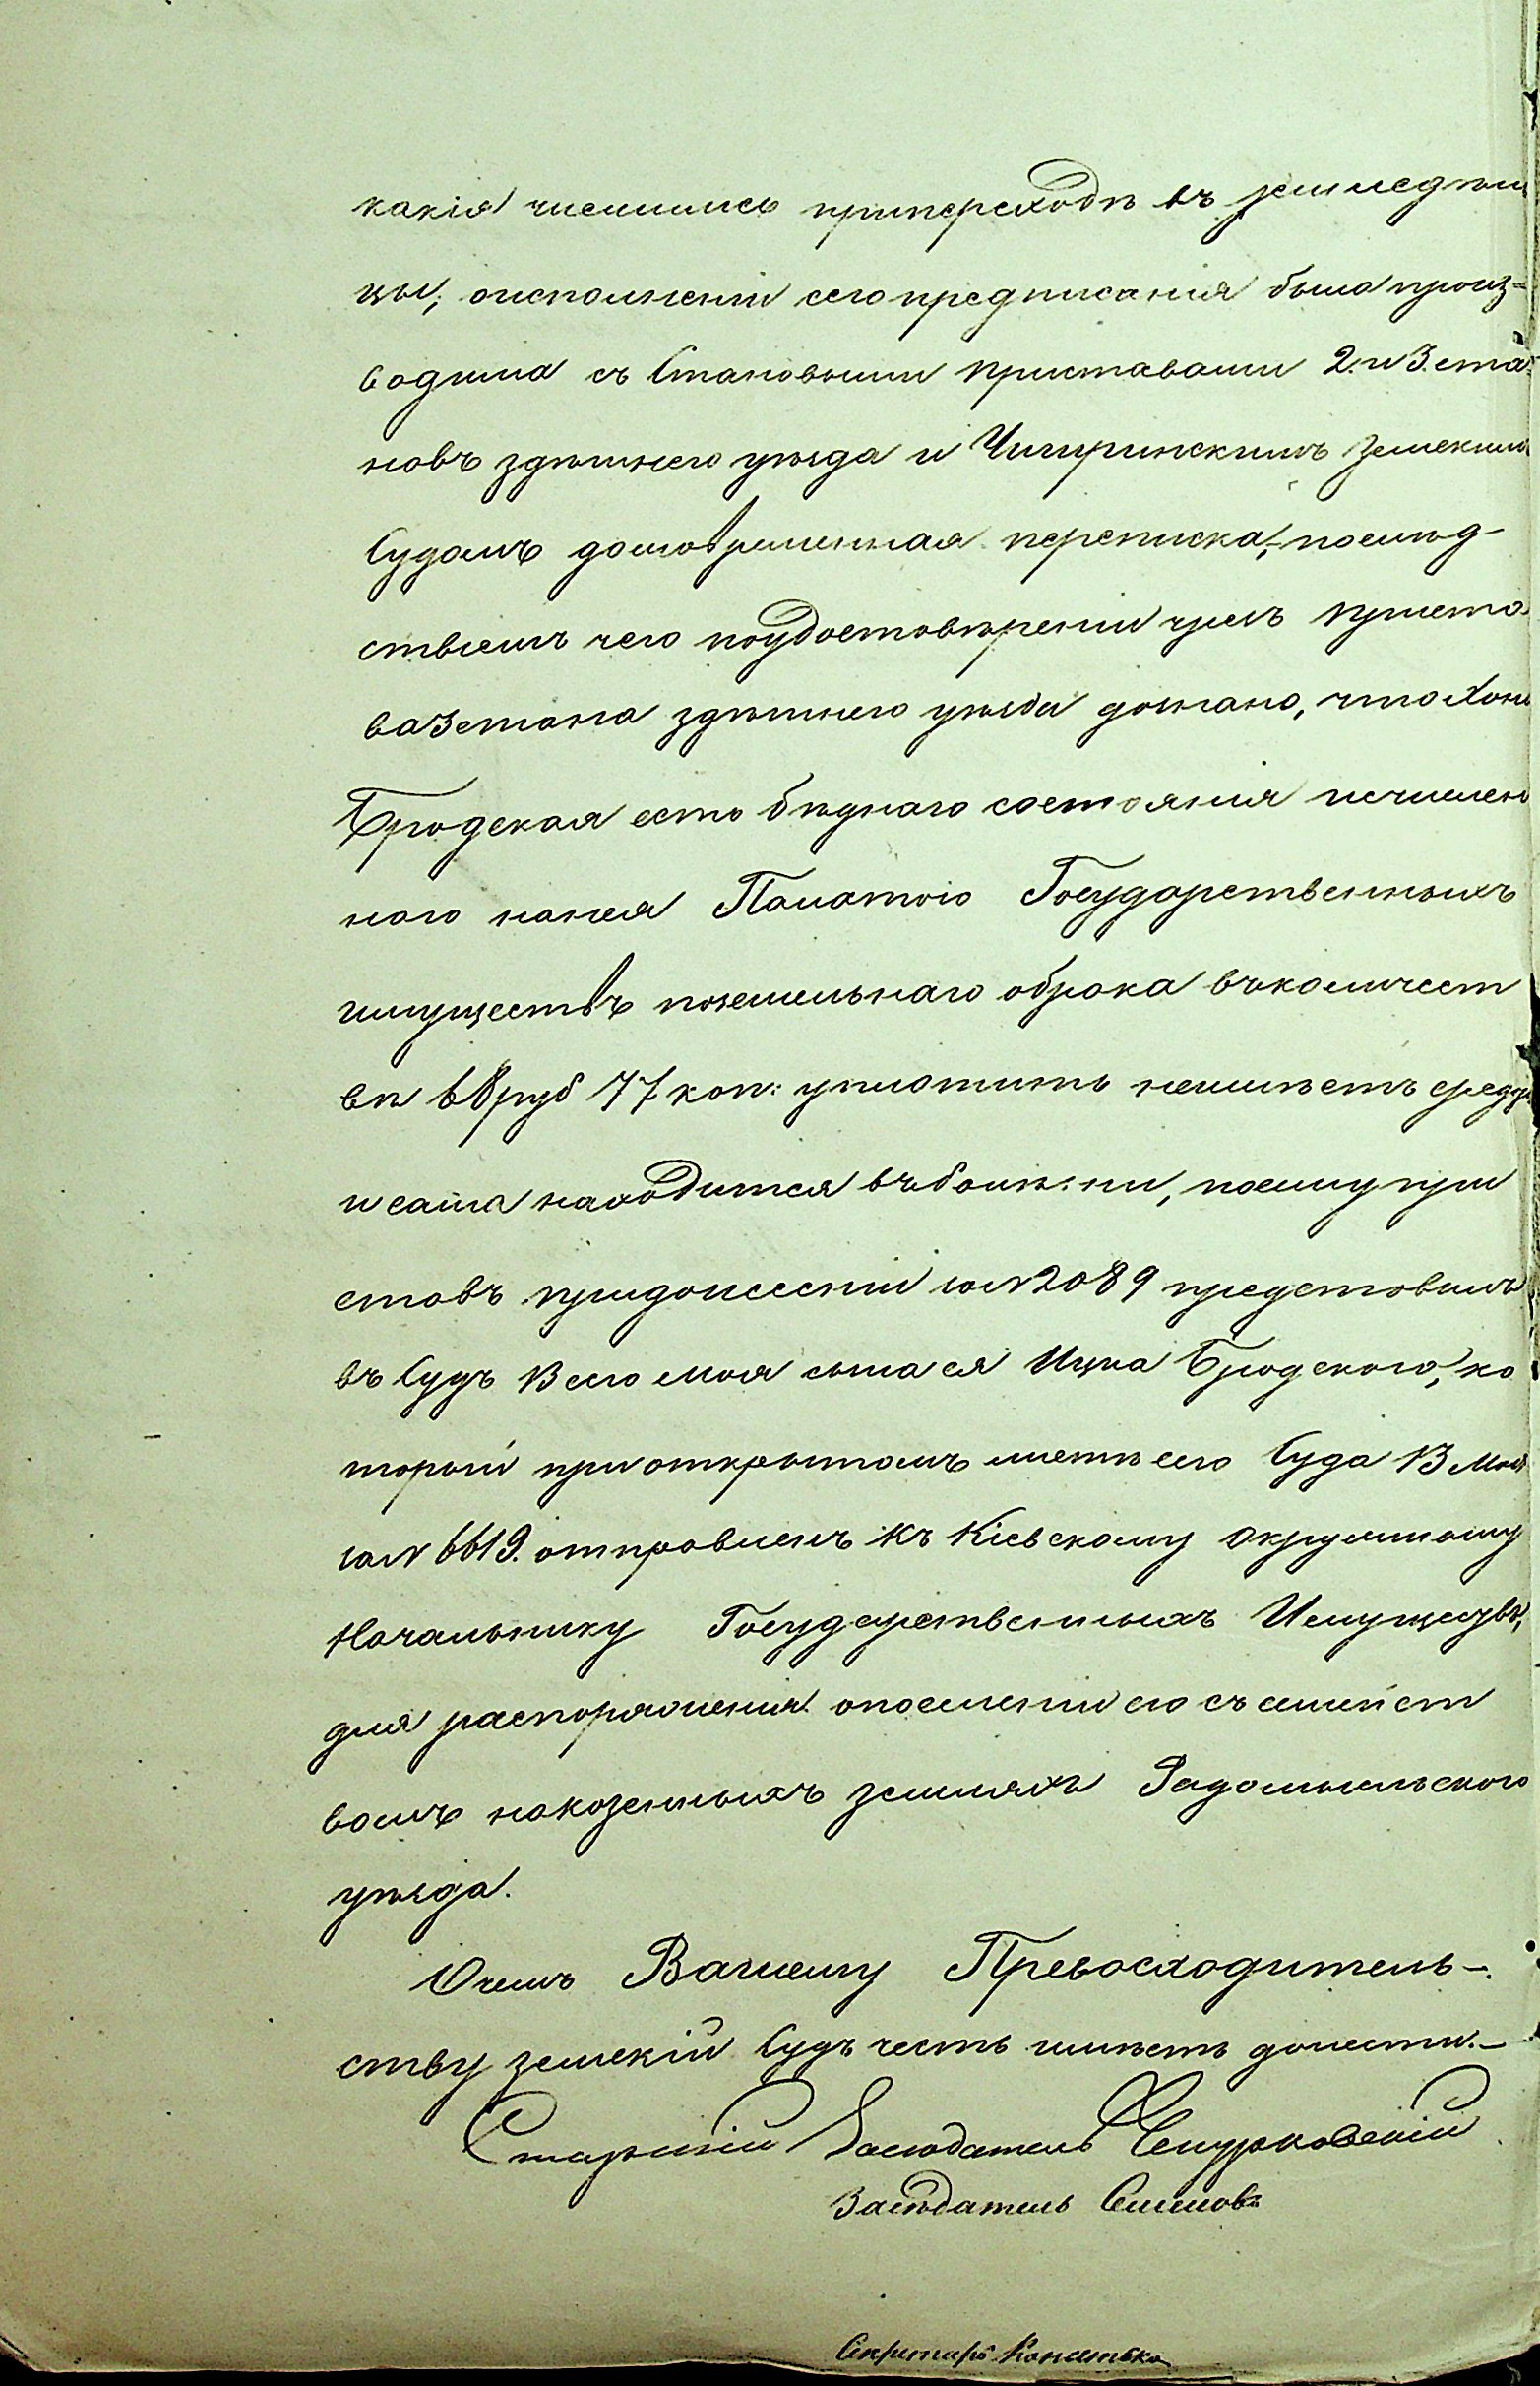 какія числились припереходѣ въ земледѣль
цы; оисполненіи сего предписанія была произ-
водима съ Становыми приставами 2. и 3. ста
новъ здѣшнего уѣзда и Чигиринскимъ Земскимъ
Судомъ долговременная переписка; послѣд-
ствіемъ чего поудостовѣреніи чрезъ приста
ва 3 стана здѣшнего уѣзда дознано, что Хана
Бродская есть бѣднаго состоянія исчислен
ного нанея Палатою Государственныхъ
имуществъ поземельнаго оброка въколичест
вѣ 68 руб 77 коп: уплотить неимѣетъ средд
и сама находится въболѣзни, посему при
ставъ придонесеніи за №2089 представилъ
въ Судъ 13 сего мая сына ея Ицка Бродского, ко
торый приоткрытомъ листѣ сего Суда 13 мая
за № 6619. отправленъ къ Кіевскому Окружному
Начальнику Государственныхъ Имуществъ,
для распоряженія опоселеніи его съ семейст
вомъ наказенныхъ земляхъ Радомысльского
уѣзда.
Очемъ Вашему Превосходитель-
ству земскій Судъ честь имѣетъ донести.-
Старшій Засѣдатель
Засѣдатель
Секретарь